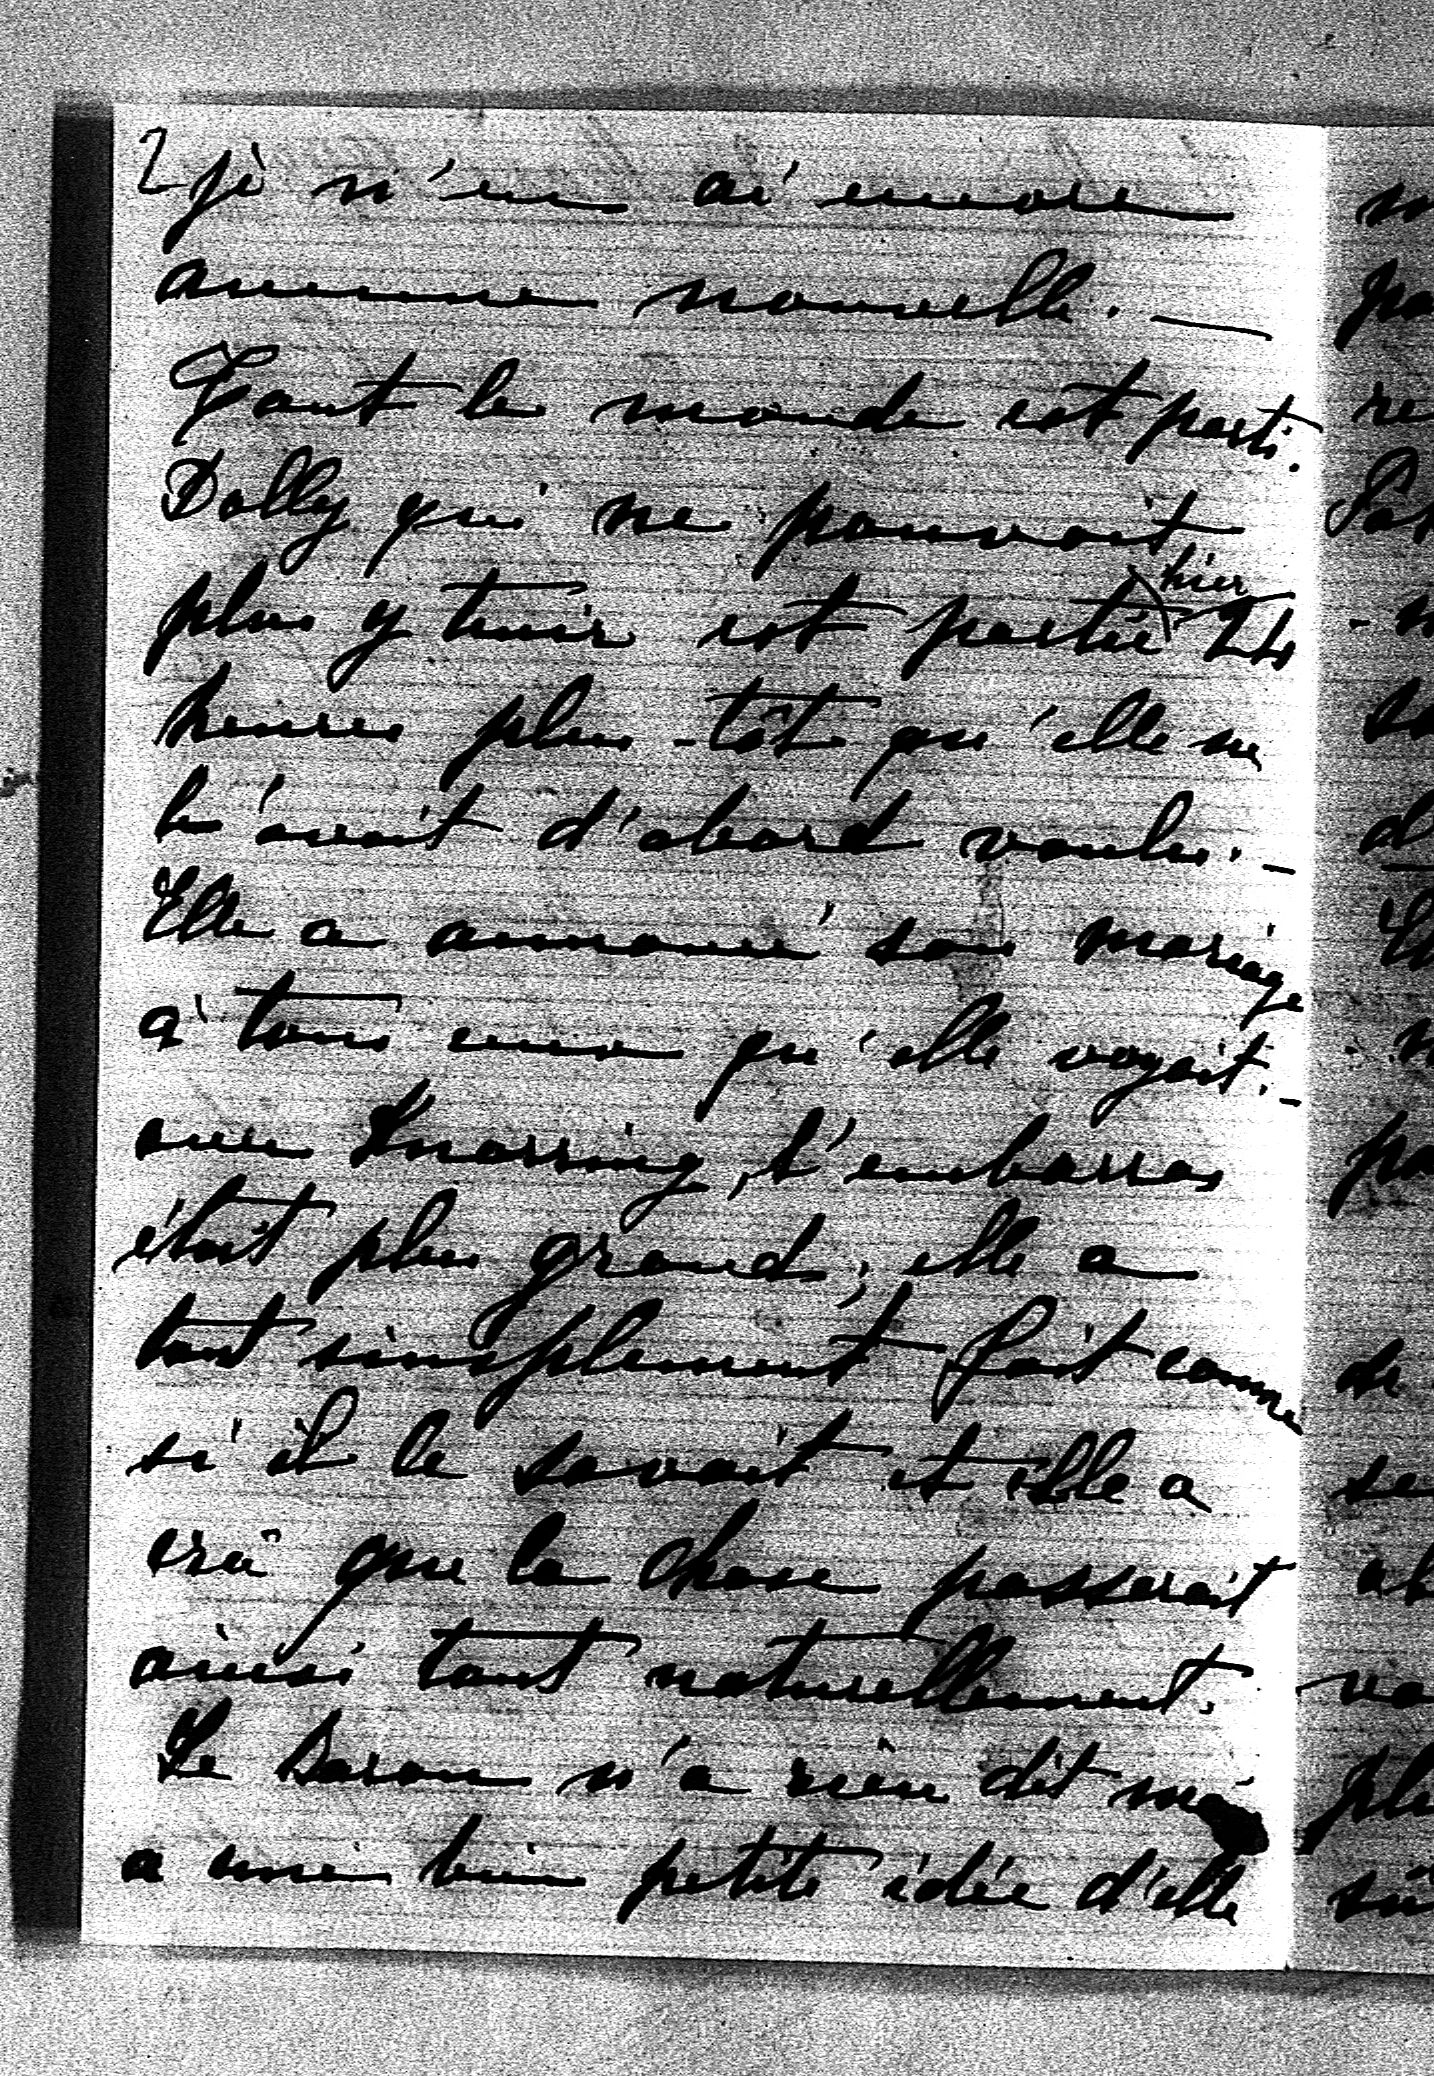 2 je n'en ai encore
aucune nouvelle. —
Tout le monde est parti.
Dolly qui ne pouvait
plus y tenir est partie hier 24
heures plus-tôt qu'elle ne
l'avait d'abord voulu. —
Elle a annoncé son mariage
à tous ceux qu'elle voyait. —
avec Knorring, l'embarras
était plus grand, elle a
tout simplement fait comme
si il le savait et elle a
crû que la chose passerait
ainsi tout naturellement.
Le Baron n'a rien dit
a une bien petite idée d'elle